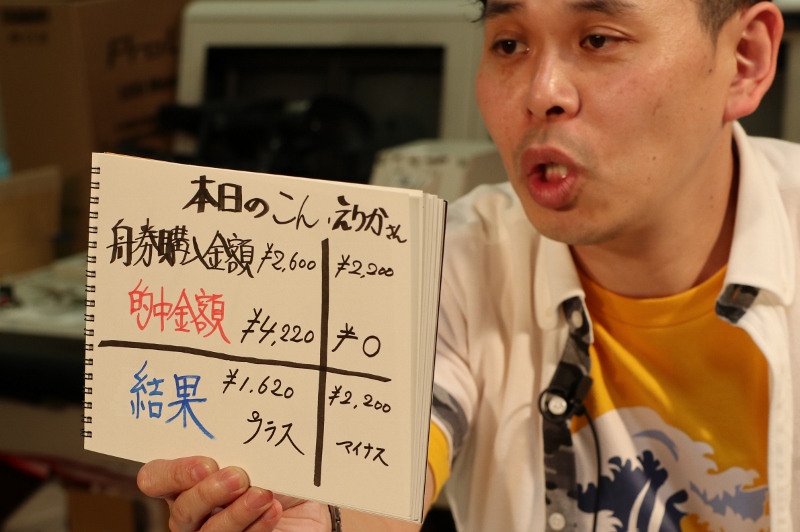 本日の こん・えりかさん
舟券購入金額 ¥2,600 ¥2,200
的中金額 ¥4,220 ¥0
結果 ¥1.620 ¥2,200
プラス マイナス